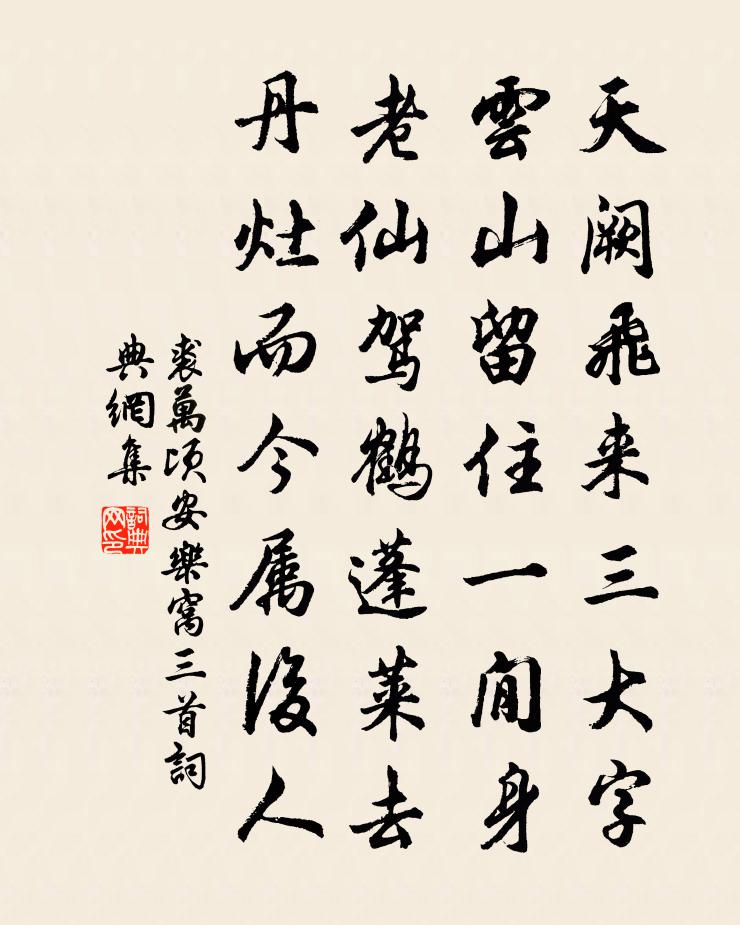 天阙飛来三大字
雲山留住一闲身
老仙駕鶴蓬莱去
丹灶而今属後人
裘萬顷安樂窩三首詞
典網集
詞典网印